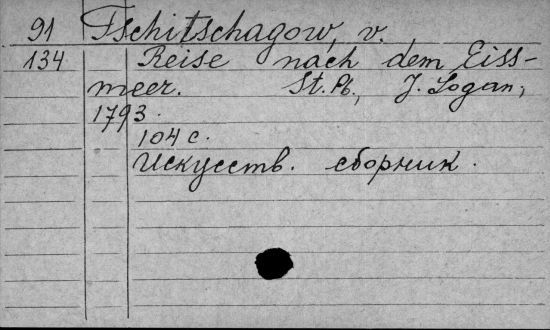 91 Tschitschagow, v.
134 Reise nach dem Eiss-
meer. St. Pb., J. Logan,
1793.
104 с.
Искусств. сборник.